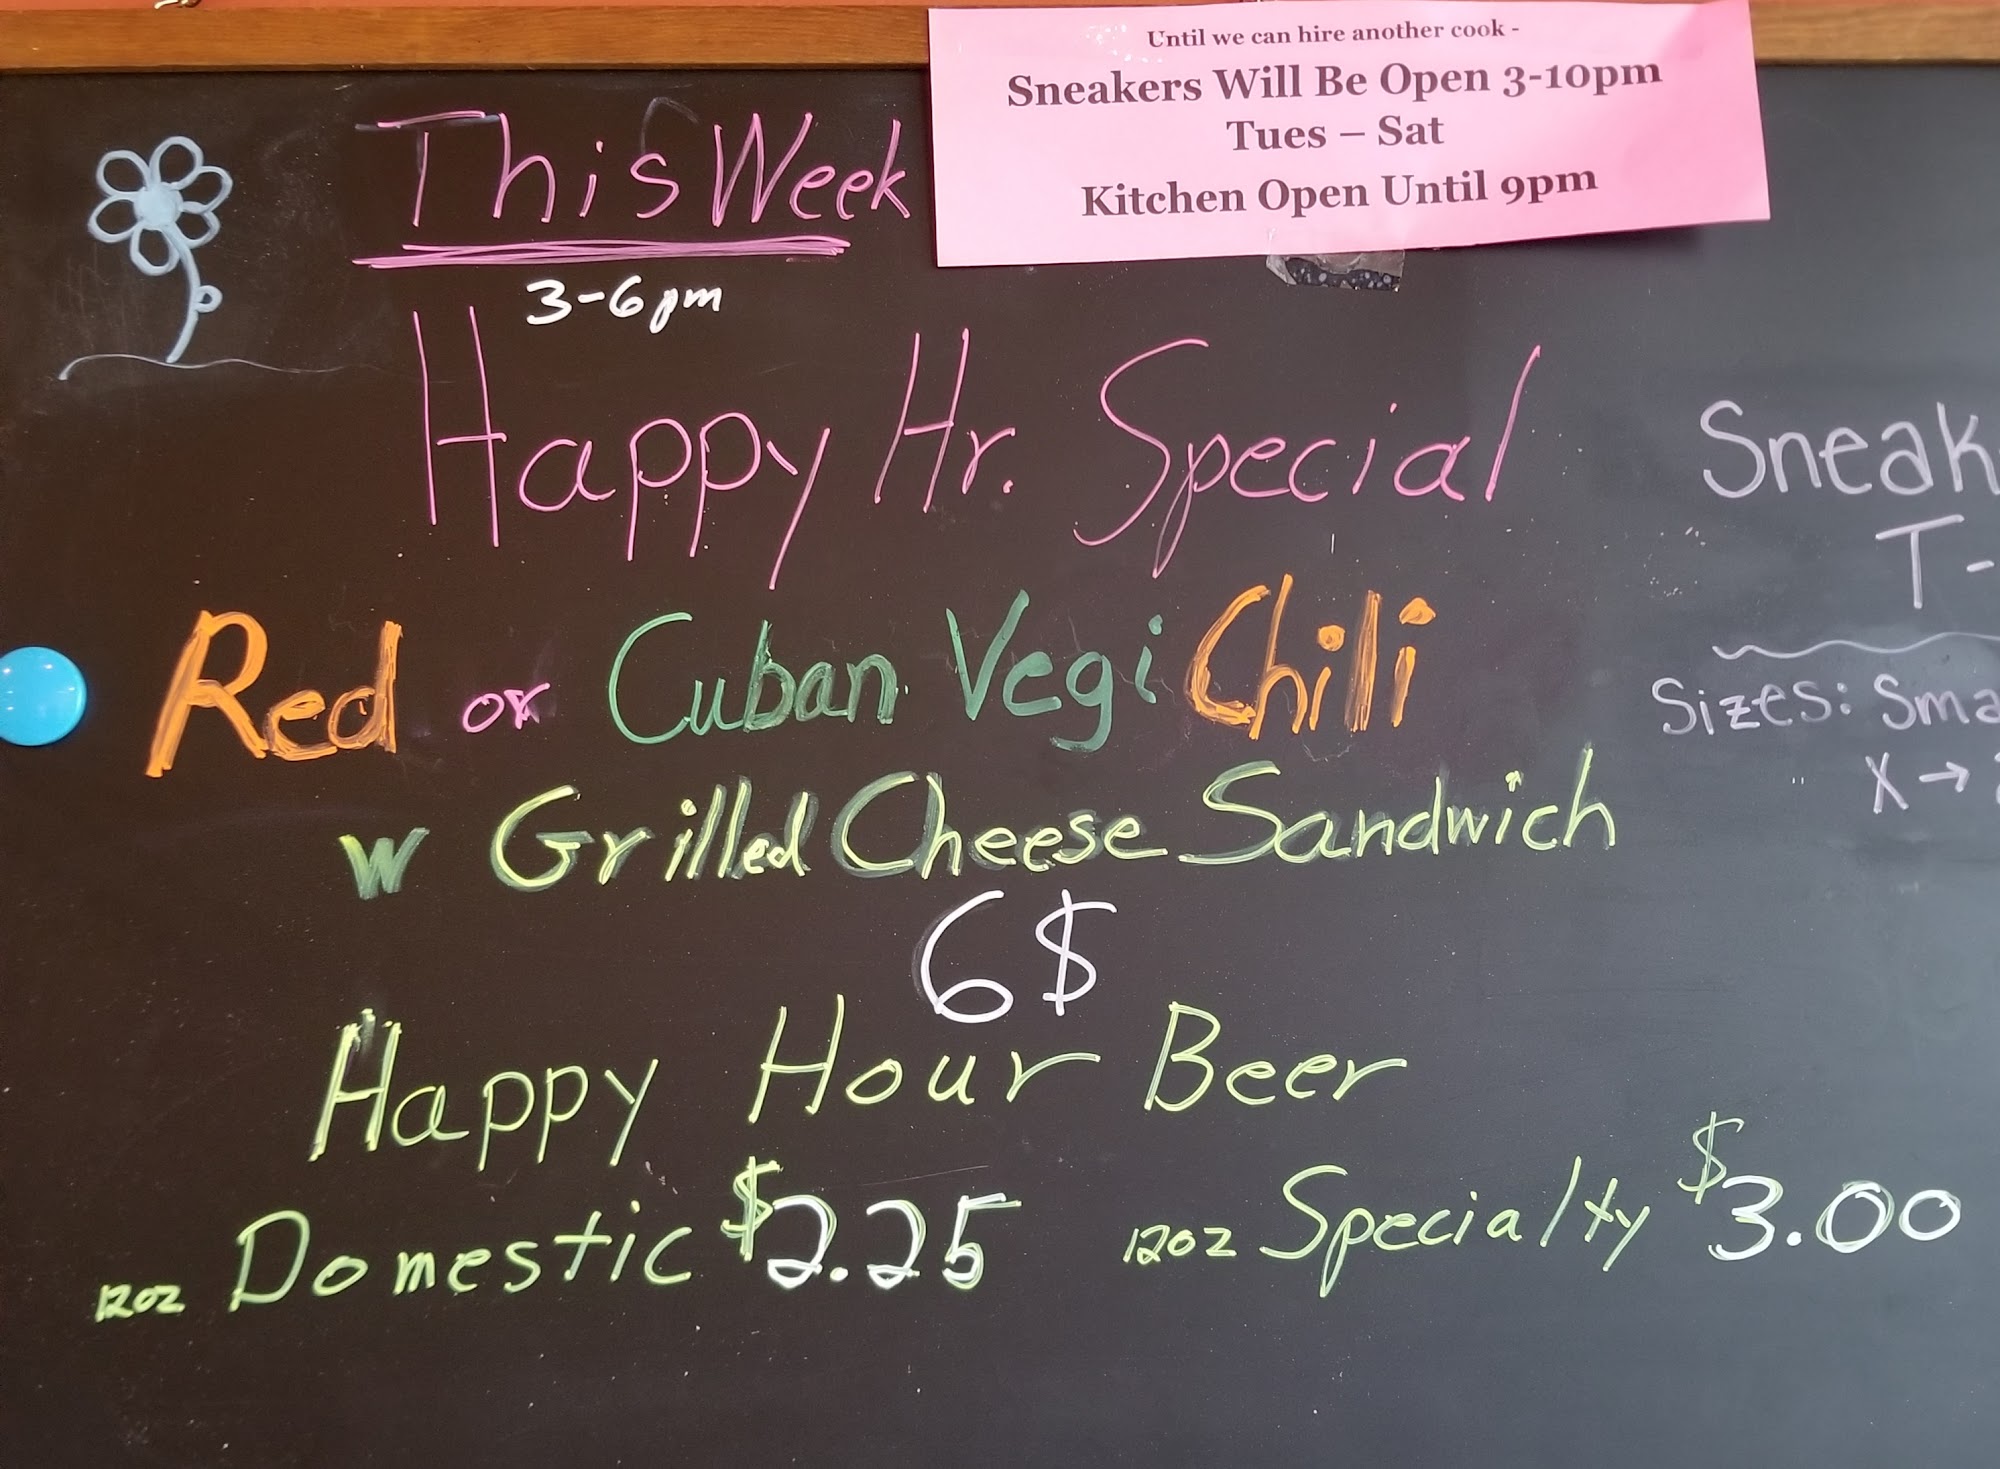 Until we can hire another cook -
Sneakers Will Be Open 3-10pm
Tues – Sat
Kitchen Open Until 9pm
This Week
3-6pm
Happy Hr. Special
Red or Cuban Vegi Chili
w Grilled Cheese Sandwich
6$
Happy Hour Beer
12oz Domestic $2.25
12oz Specialty $3.00
Sneak
T-
Sizes: Sma
X →